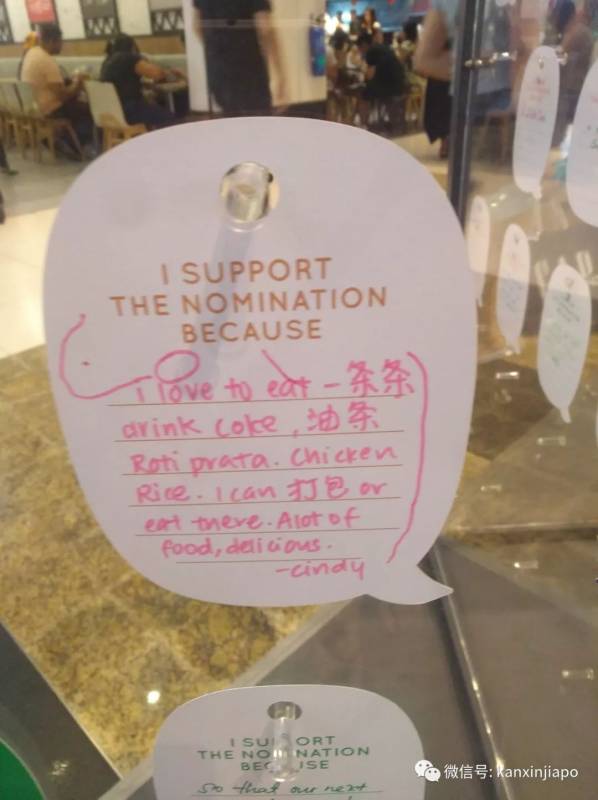 I SUPPORT
THE NOMINATION
BECAUSE
I love to eat 一条条
drink Coke, 油条
Roti prata. Chicken
Rice. I can 打包 or
eat there. Alot of
food, delicious.
-Cindy
I SUPPORT
THE NOMINATION
BECAUSE
so that our next
微信号: kanxinjiapo